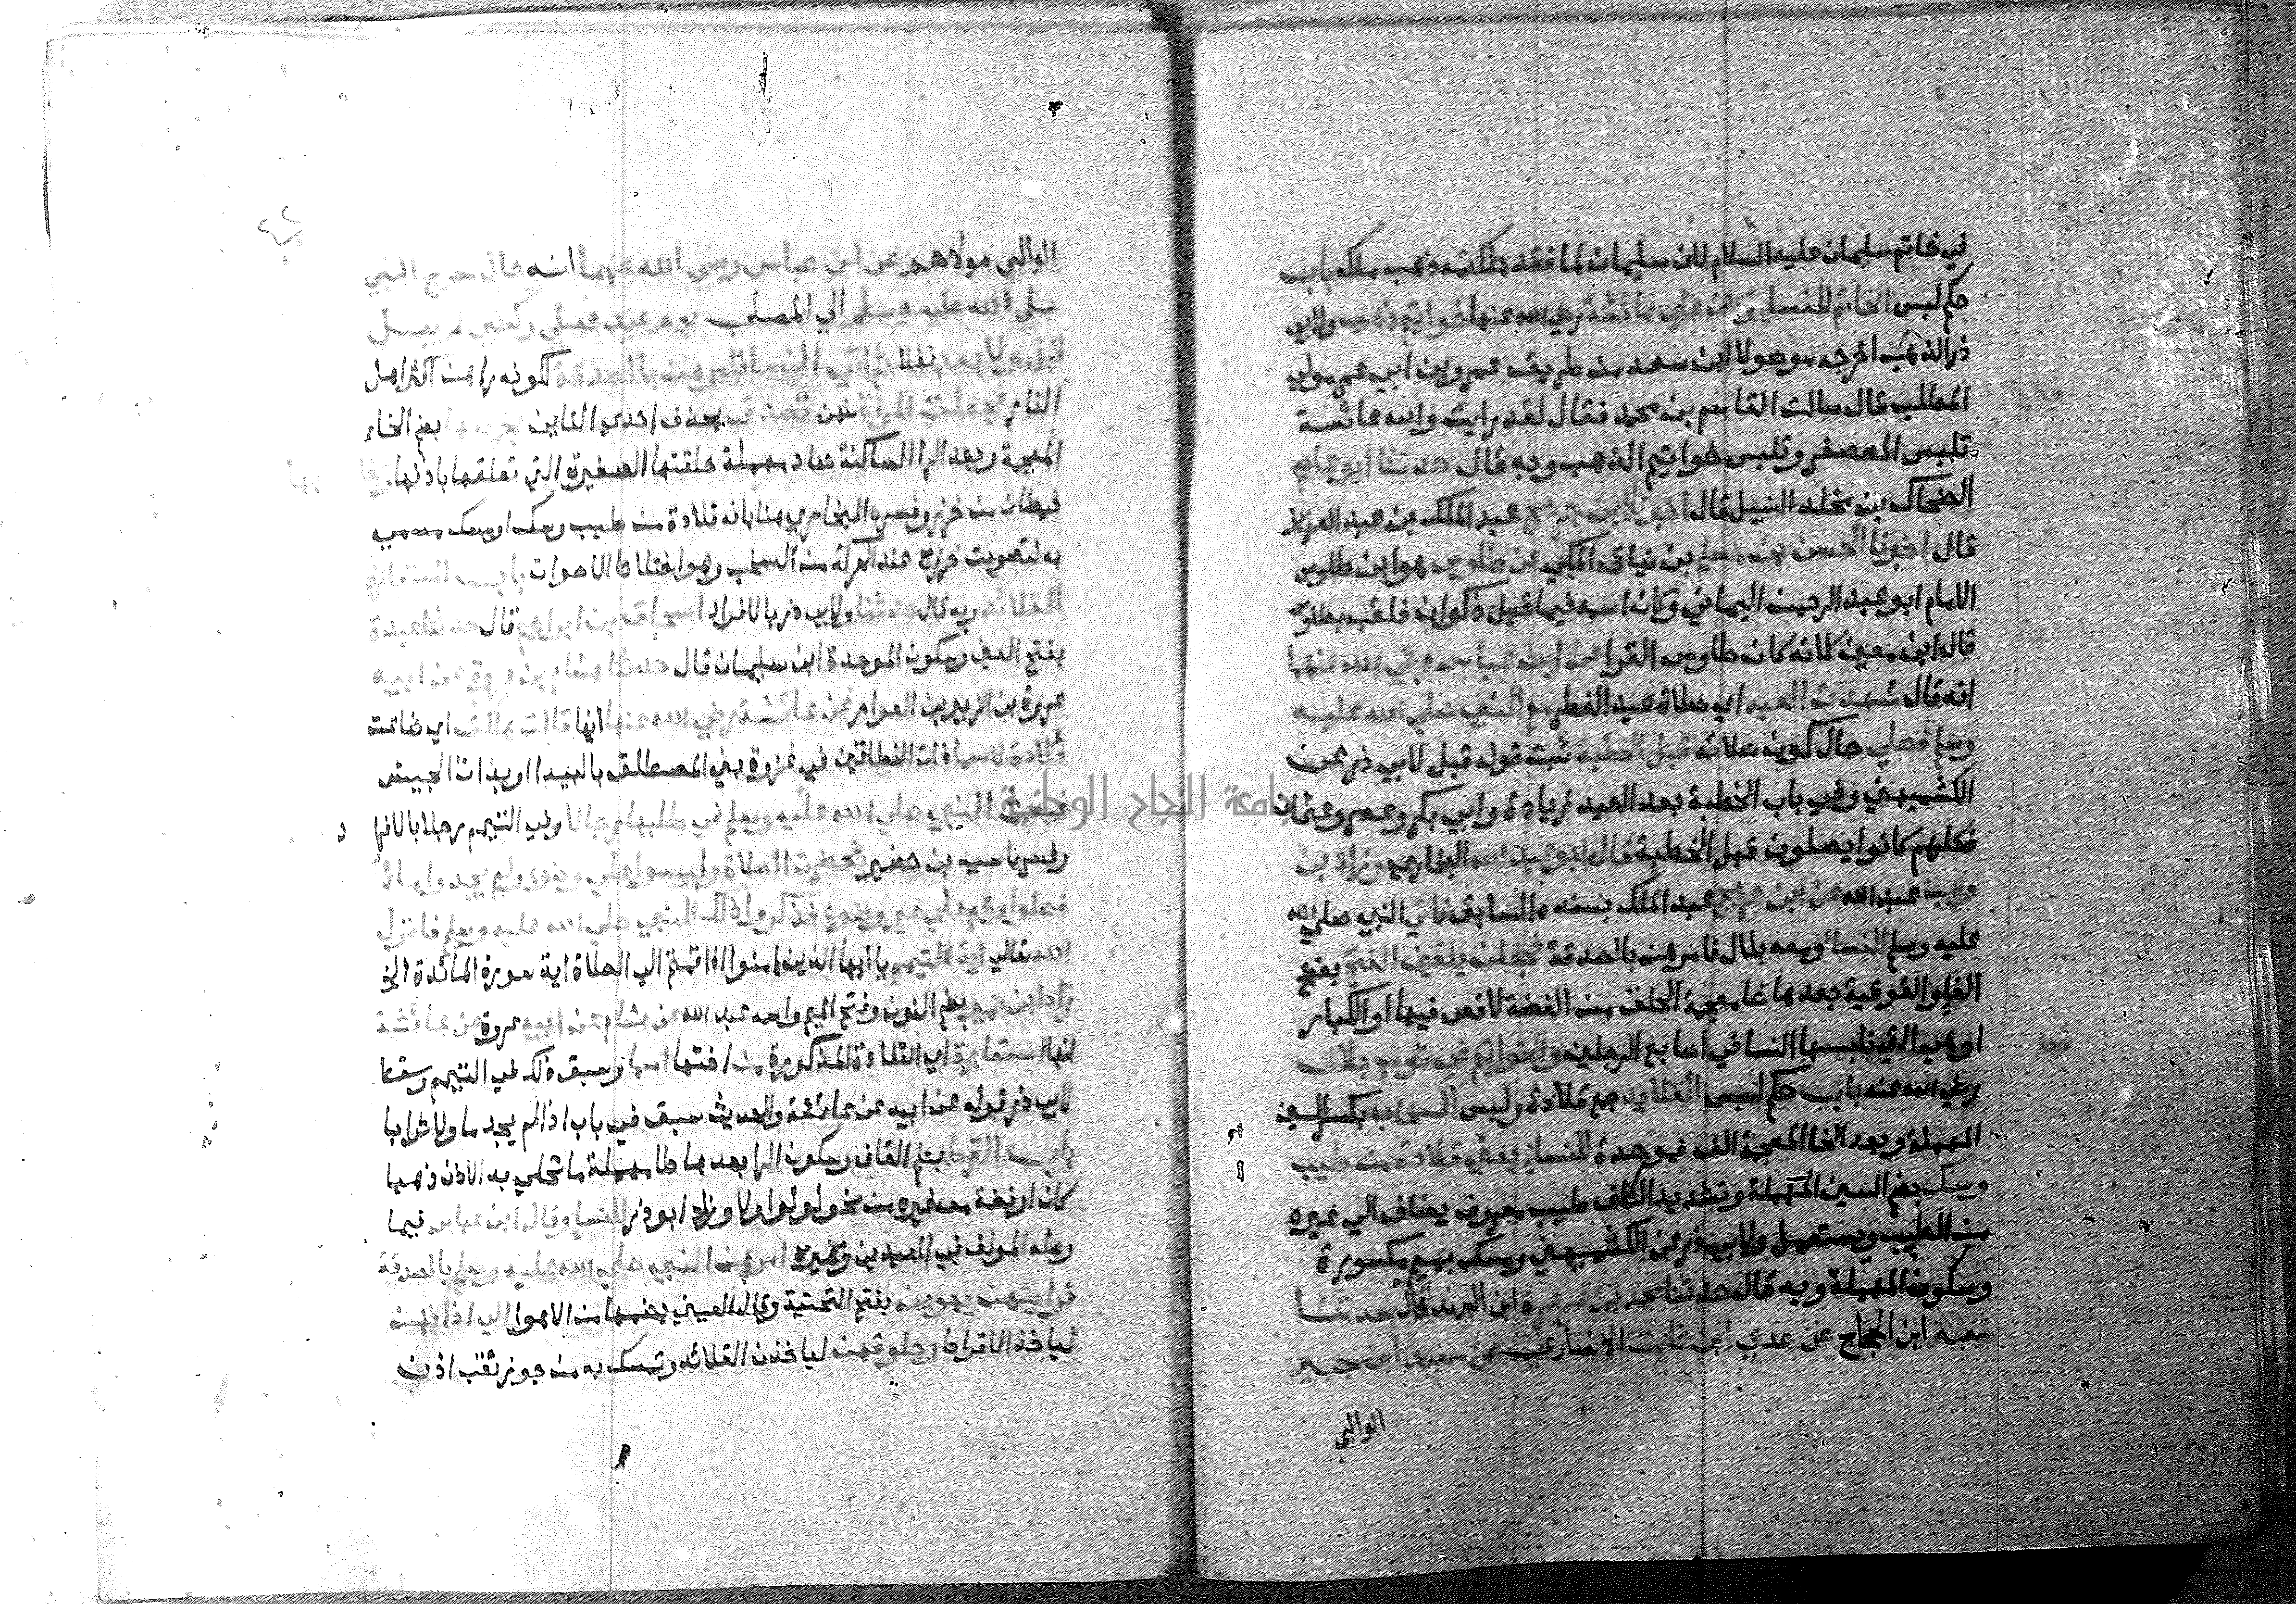 في خاتم سليمان عليه السلام لان سليمان لما فقد ملكه ذهب ملكه باب
حكم لبس الخاتم للنساء وكان على عائشة رضي الله عنها خواتيم ذهب ولابي
ذر الذهب اخرجه موصولا ابن سعد من طريق عمرو بن ابي عمرو مولى
المطلب قال سالت القاسم بن محمد فقال لقد رايت والله عائشة
تلبس المعصفر وتلبس خواتيم الذهب وبه قال حدثنا ابو عاصم
الضحاك بن مخلد النبيل قال اخبرنا ابن جريج عبد الملك بن عبد العزيز
قال اخبرنا الحسن بن مسلم بن يناق المكي عن طاوس هو ابن طاوس
الامام ابو عبد الرحمن اليماني وكان اسمه فيما قيل ذكوان فلقب بطاوس
قال ابن معين لانه كان طاوس القرا عن ابن عباس رضي الله عنهما
انه قال شهدت العيد اي صلاة عيد الفطر مع النبي صلى الله عليه
وسلم فصلى حال كون صلاته قبل الخطبة ثبت قوله قبل لابي ذر عن
الكشميهني وفي باب الخطبة بعد العيد زيادة وابي بكر وعمر وعثمان
فكلهم كانوا يصلون قبل الخطبة قال ابو عبد الله البخاري وزاد بن
وهب عبد الله عن ابن جريج عبد الملك بسنده السابق فاتى النبي صلى الله
عليه وسلم النساء ومعه بلال فامرهن بالصدقة فجعلن يلقين الفتخ بفتح
الفاء والفوقية بعدها خا معجمة الحلق من الفضة لا فص فيها او الكبار
او هي التي تلبسها النسا في اصابع الرجلين والخواتم في ثوب بلال
رضي الله عنه باب حكم لبس القلايد جمع قلادة ولبس السخاب بكسر السين
المهملة وبعد الخا المعجمة الف فموحدة للنساء يعني قلادة من طيب
وسك بضم السين المهملة وتشديد الكاف طيب معروف يضاف الى غيره
من الطيب ويستعمل ولابي ذر عن الكشميهني ومسك بميم مكسورة
وسكون المهملة وبه قال حدثنا محمد بن عرعرة ابن البرند قال حدثنا
شعبة ابن الحجاج عن عدي ابن ثابت الانصاري عن سعيد ابن جبير
الوالبي
الوالبي مولاهم عن ابن عباس رضي الله عنهما انه قال خرج النبي
صلى الله عليه وسلم الى المصلى يوم عيد فصلى ركعتين لم يصل
قبل ولا بعد نفلا ثم اتى النسا فامرهن بالصدقة لكونه راهن اكثر اهل
النار فجعلت المراة منهن تصدق بحذف احدي التاين بخرصها بضم الخاء
المعجمة وبعد الرا الساكنة صاد مهملة حلقتها الصغيرة التي تعلقها باذنها
خيطان من خرز وفسره البخاري هنا بانه قلادة من طيب وسك او مسك سمي
به لتصويت خرزه عند الحركة من السخب وهو اختلاط الاصوات باب استعارة
القلائد وبه قال حدثنا ولابي ذر بالافراد اسحاق بن ابراهيم قال حدثنا عبدة
بفتح العين وسكون الموحدة ابن سليمان قال حدثنا هشام بن عروة عن ابيه
عروة بن الزبير بن العوام عن عائشة رضي الله عنها انها قالت هلكت اي ضاعت
قلادة لاسما ذات النطاقين في غزوة بني المصطلق بالبيدا او بذات الجيش
فبعث النبي صلى الله عليه وسلم في طلبها رجالا وفي التيمم رجلا بالافراد
وفسر باسيد بن حضير فحضرت الصلاة وليسوا على وضوء ولم يجدوا ماء
فصلوا وهم على غير وضوء فذكروا ذلك للنبي صلى الله عليه وسلم فانزل
الله تعالى اية التيمم يا ايها الذين امنوا اذا قمتم الى الصلاة اية سورة المائدة الخ
زاد ابن نمير بضم النون وفتح الميم واسمه عبد الله عن هشام عن ابيه عروة عن عائشة
انها استعارة اي القلادة المذكورة من اختها اسما وسبق ذلك في التيمم وسقط
لابي ذر قوله عن ابيه عن عائشة والحديث سبق في باب اذا لم يجد ماء ولا ترابا
باب القرط بضم القاف وسكون الرا بعدها طا مهملة ما تحلى به الاذن ذهبا
كان او فضة مع غيره من نحو لولو او لا وزاد ابو ذر للنساء وقال ابن عباس فيما
وصله المولف في العيدين وغيره امرهن النبي صلى الله عليه وسلم بالصدقة
فرايتهن يهوين بفتح التحتية وقال العيني بضمها من الاهوا الى اذانهن
لياخذ الاقراط وحلوقهن لياخذن القلائد وتمسك به من جوز ثقب اذن